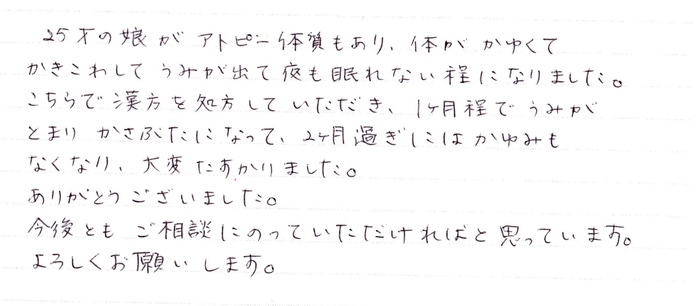 25才の娘がアトピー体質もあり、体がかゆくて
かきこわしてうみが出て夜も眠れない程になりました。
こちらで漢方を処方していただき、1ヶ月程でうみが
とまりかさぶたになって、2ヶ月過ぎにはかゆみも
なくなり、大変たすかりました。
ありがとうございました。
今後ともご相談にのっていただければと思っています。
よろしくお願いします。